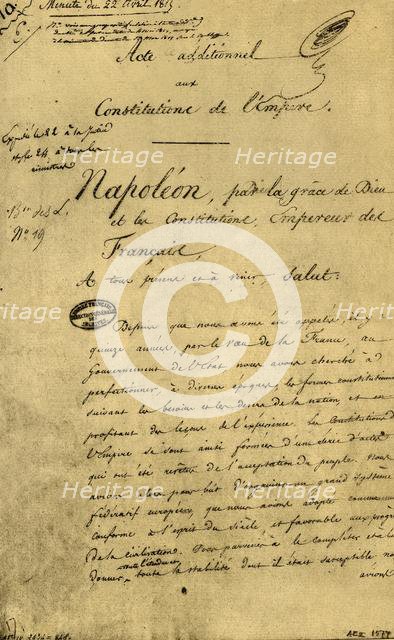 Minute du 22 avril 1815
Acte additionnel
aux
Constitutions de l'Empire.
Expédié le 22 à la
Napoléon, par la grâce de Dieu
Bin des L.
et les Constitutions, Empereur des
No 19
Français,
A tous présens et à venir, Salut:
Depuis que nous avons été appelés, il y a
quinze années, par le vœu de la France, au
Gouvernement de l'Etat nous avons cherché à
perfectionner, à diverses époques, les formes constitutionnelles
suivant les besoins et les désirs de la nation, et en
profitant des leçons de l'expérience. Les Constitutions de
l'Empire se sont ainsi formées d'une série d'actes
qui ont été revêtus de l'acceptation du peuple. Nous
avions alors pour but d'organiser un grand système
fédératif européen, que nous avions adopté comme
conforme à l'esprit du siècle et favorable aux progrès
de la civilisation. Pour parvenir à le compléter et à lui
donner toute l'étendue et
toute la stabilité dont il était susceptible nous
avions
AE II 1577
Heritage
Heritage
Heritage
Heritage
Heritage
Heritage
Heritage
Heritage